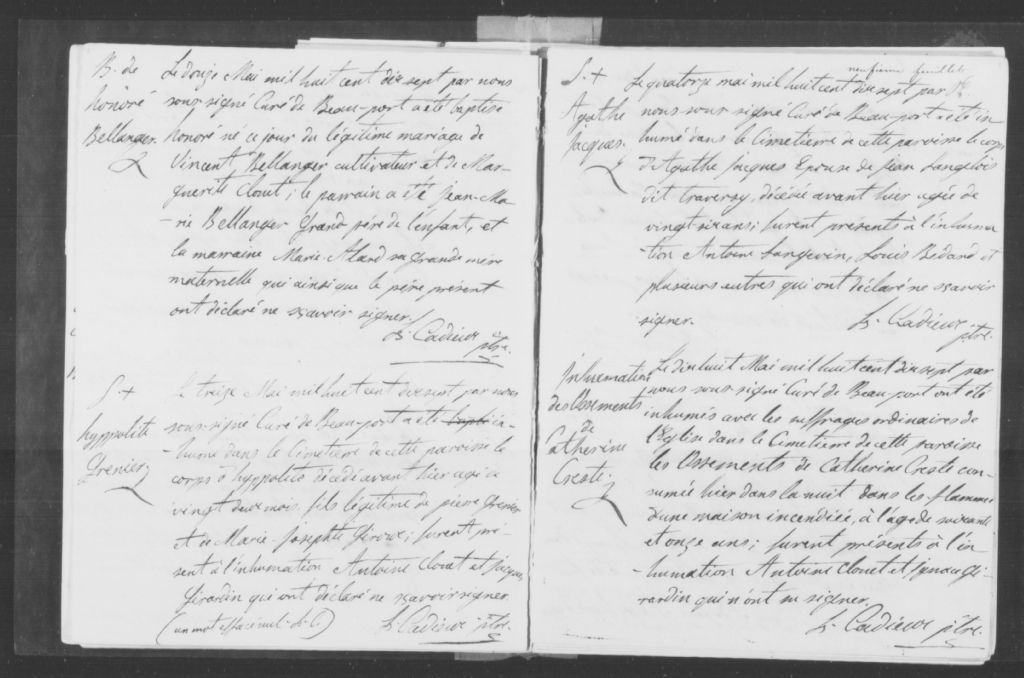 B. de
honoré
Bellanger
Le douze Mai mil huit cent dix sept par nous
sous-signé Curé de Beau-port a été baptisé
honoré né ce jour du légitime mariage de
Vincent Bellanger cultivateur et de Mar-
guerite Clouet; le parrain a été Jean-Ma-
rie Bellanger Grand père de l'enfant, et
la marraine Marie Alard sa grande mere
maternelle qui ainsi que le père présent
ont déclaré ne sçavoir signer.
L. Cadieux ptre.
S. +
hyppolite
Grenier
Le treize Mai mil huit cent dix sept par nous
sous-signé Curé de Beau-port a été in-
humé dans le Cimetière de cette paroisse le
corps d'hyppolite décédé avant hier agé de
vingt deux mois, fils légitime de pierre Grenier
et de Marie-Josephte Giroux; furent pré-
sent à l'inhumation Antoine Clouet et Jacques
Girardin qui ont déclaré ne sçavoir signer.
(un mot effacé nul. L. C.)
L. Cadieux ptre.
neufieme feuillet
S. +
Agathe
Jacques
Le quatorze mai mil huit cent dix sept par
nous sous-signé Curé de Beau-port a été in
humé dans le Cimetière de cette paroisse le corps
d'Agathe Jacques Epouse de Jean Langlois
dit traversy, décédé avant hier agée de
vingt six ans; furent présents à l'inhuma
-tion Antoine Langevin, Louis Bedard et
plusieurs autres qui ont déclaré ne sçavoir
signer.
L. Cadieux ptre.
Inhumation
des Ossements
de
Catherine
Creste
Le dix huit Mai mil huit cent dix sept par
nous sous-signé Curé de Beau-port ont été
inhumés avec les suffrages ordinaires de
l'Eglise dans le Cimetière de cette paroisse
les Ossements de Catherine Creste con-
sumée hier dans la nuit dans les flammes
d'une maison incendiée, à l'age de soixante
et onze ans; furent présents à l'in
-humation Antoine Clouet et Ignace Gi-
rardin qui n'ont su signer.
L. Cadieux ptre.